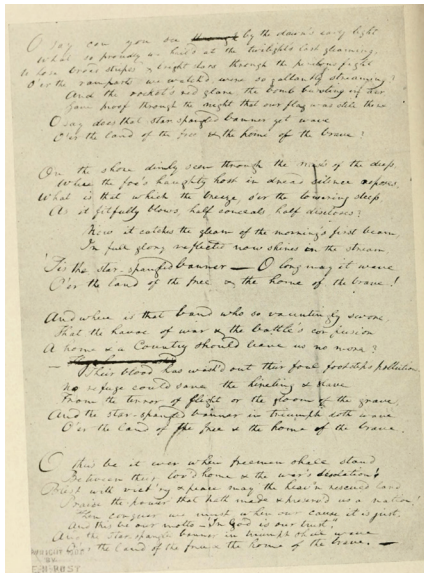 O say can you see ~~through~~ by the dawn's early light
What so proudly we hail'd at the twilight's last gleaming,
Whose broad stripes & bright stars through the perilous fight
O'er the ramparts we watch'd, were so gallantly streaming?
And the rocket's red glare, the bomb bursting in air,
Gave proof through the night that our flag was still there
O say does that star spangled banner yet wave
O'er the land of the free & the home of the brave?
On the shore dimly seen through the mists of the deep,
Where the foe's haughty host in dread silence reposes,
What is that which the breeze, o'er the towering steep,
As it fitfully blows, half conceals, half discloses?
Now it catches the gleam of the morning's first beam,
In full glory reflected now shines in the stream
'Tis the star-spangled banner — O long may it wave
O'er the land of the free & the home of the brave!
And where is that band who so vauntingly swore,
That the havoc of war & the battle's confusion
A home & a Country should leave us no more?
—
Their blood has wash'd out their foul footsteps pollution
No refuge could save the hireling & slave
From the terror of flight or the gloom of the grave,
And the star-spangled banner in triumph doth wave
O'er the land of the free & the home of the brave.
O thus be it ever when freemen shall stand
Between their lov'd home & the war's desolation!
Blest with vict'ry & peace may the heav'n rescued land
Praise the power that hath made & preserv'd us a nation!
Then conquer we must, when our cause it is just,
And this be our motto — "In God is our trust,"
And the star-spangled banner in triumph shall wave
O'er the land of the free & the home of the brave. —
COPYRIGHT
BY